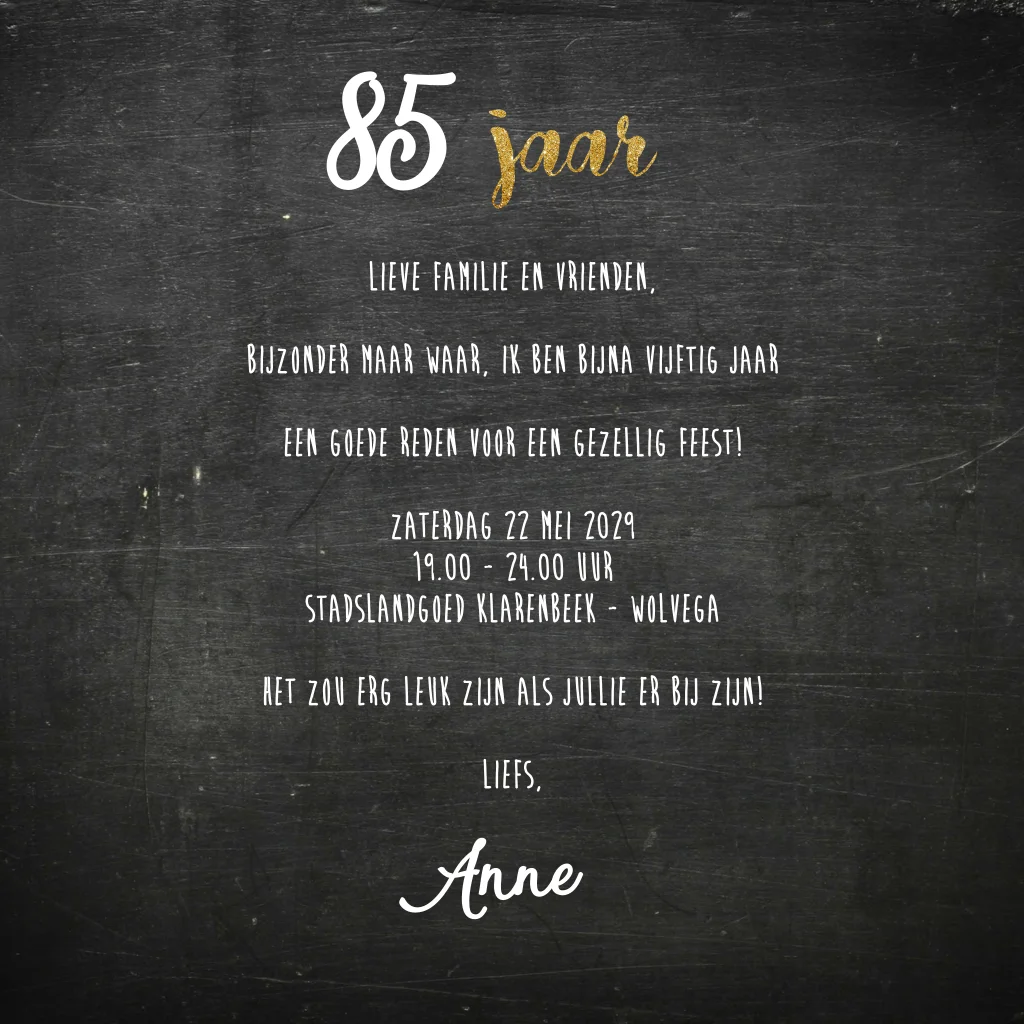 85 jaar
LIEVE FAMILIE EN VRIENDEN,
BIJZONDER MAAR WAAR, IK BEN BIJNA VIJFTIG JAAR
EEN GOEDE REDEN VOOR EEN GEZELLIG FEEST!
ZATERDAG 22 MEI 2029
19.00 - 24.00 UUR
STADSLANDGOED KLARENBEEK - WOLVEGA
HET ZOU ERG LEUK ZIJN ALS JULLIE ER BIJ ZIJN!
LIEFS,
Anne